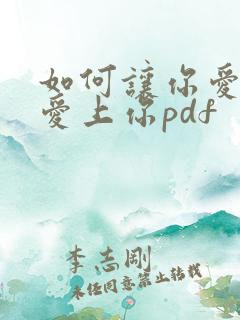 如何讓你愛
愛上你pdf
李志剛
未经同意禁止转载